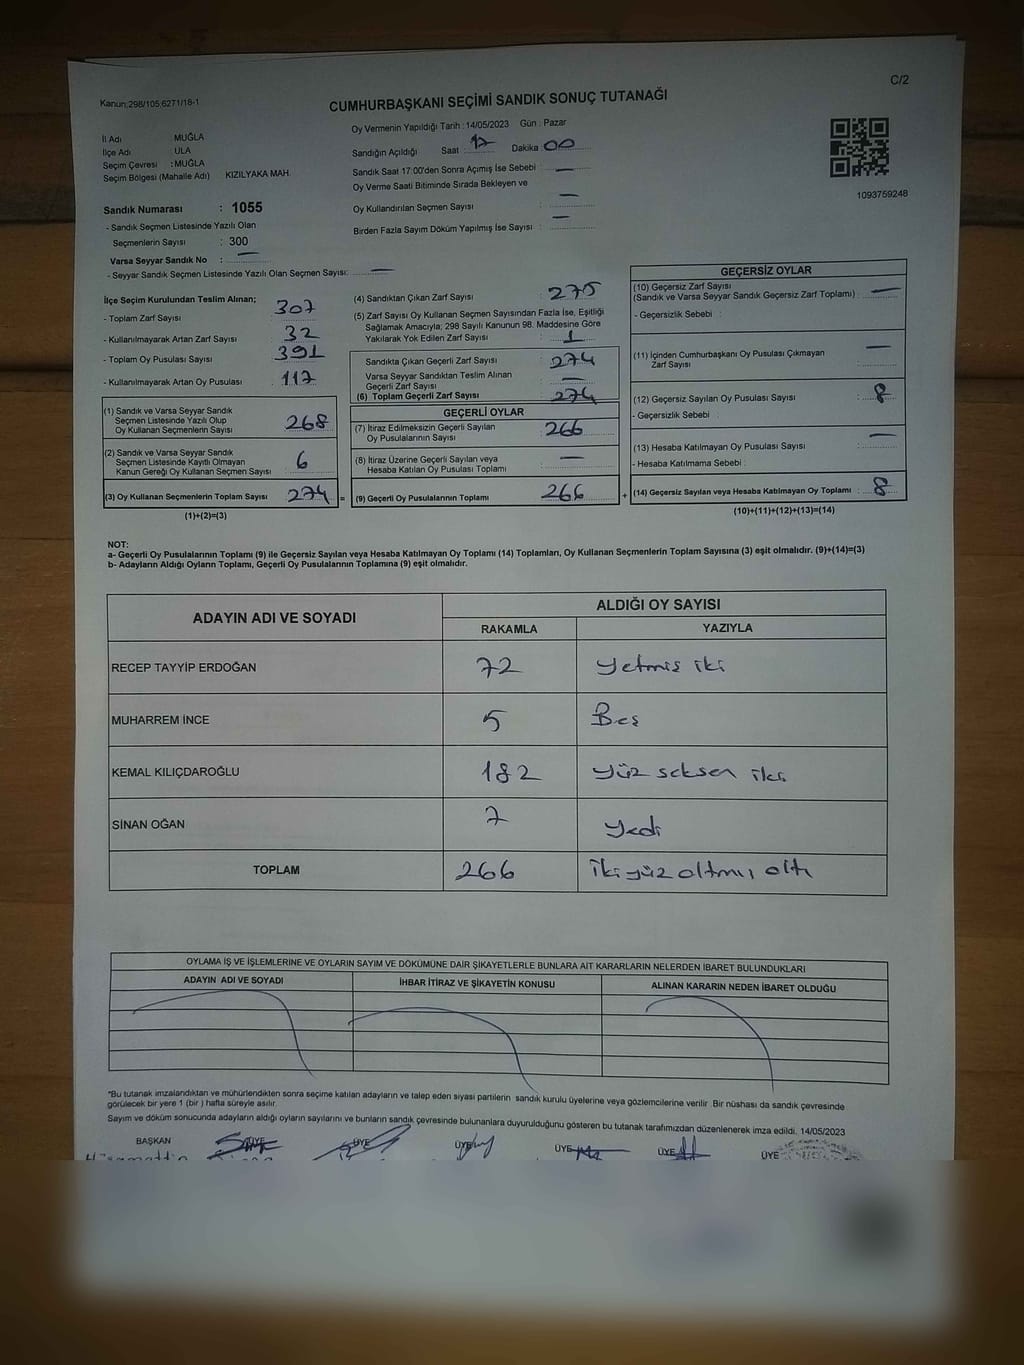 C/2
Kanun:298/105,6271/18-1
CUMHURBAŞKANI SEÇİMİ SANDIK SONUÇ TUTANAĞI
İl Adı MUĞLA
İlçe Adı : ULA
Seçim Çevresi : MUĞLA
Seçim Bölgesi (Mahalle Adı) KIZILYAKA MAH.
Oy Vermenin Yapıldığı Tarih : 14/05/2023 Gün : Pazar
Sandığın Açıldığı Saat : 17 Dakika 00
Sandık Saat 17:00'den Sonra Açımış İse Sebebi : —
Oy Verme Saati Bitiminde Sırada Bekleyen ve
Oy Kullandırılan Seçmen Sayısı : —
Birden Fazla Sayım Döküm Yapılmış İse Sayısı : —
1093759248
Sandık Numarası : 1055
- Sandık Seçmen Listesinde Yazılı Olan
Seçmenlerin Sayısı : 300
Varsa Seyyar Sandık No : —
- Seyyar Sandık Seçmen Listesinde Yazılı Olan Seçmen Sayısı: —
İlçe Seçim Kurulundan Teslim Alınan;
- Toplam Zarf Sayısı 307
- Kullanılmayarak Artan Zarf Sayısı 32
- Toplam Oy Pusulası Sayısı 391
- Kullanılmayarak Artan Oy Pusulası 117
(1) Sandık ve Varsa Seyyar Sandık
Seçmen Listesinde Yazılı Olup
Oy Kullanan Seçmenlerin Sayısı 268
(2) Sandık ve Varsa Seyyar Sandık
Seçmen Listesinde Kayıtlı Olmayan
Kanun Gereği Oy Kullanan Seçmen Sayısı 6
(3) Oy Kullanan Seçmenlerin Toplam Sayısı 274 =
(1)+(2)=(3)
(4) Sandıktan Çıkan Zarf Sayısı : 275
(5) Zarf Sayısı Oy Kullanan Seçmen Sayısından Fazla İse, Eşitliği
Sağlamak Amacıyla; 298 Sayılı Kanunun 98. Maddesine Göre
Yakılarak Yok Edilen Zarf Sayısı : 1
Sandıkta Çıkan Geçerli Zarf Sayısı 274
Varsa Seyyar Sandıktan Teslim Alınan
Geçerli Zarf Sayısı —
(6) Toplam Geçerli Zarf Sayısı 274
GEÇERLİ OYLAR
(7) İtiraz Edilmeksizin Geçerli Sayılan
Oy Pusulalarının Sayısı 266
(8) İtiraz Üzerine Geçerli Sayılan veya
Hesaba Katılan Oy Pusulası Toplamı —
(9) Geçerli Oy Pusulalarının Toplamı 266 +
GEÇERSİZ OYLAR
(10) Geçersiz Zarf Sayısı
(Sandık ve Varsa Seyyar Sandık Geçersiz Zarf Toplamı) : —
- Geçersizlik Sebebi :
(11) İçinden Cumhurbaşkanı Oy Pusulası Çıkmayan
Zarf Sayısı —
(12) Geçersiz Sayılan Oy Pusulası Sayısı : 8
- Geçersizlik Sebebi :
(13) Hesaba Katılmayan Oy Pusulası Sayısı —
- Hesaba Katılmama Sebebi :
(14) Geçersiz Sayılan veya Hesaba Katılmayan Oy Toplamı : 8
(10)+(11)+(12)+(13)=(14)
NOT:
a- Geçerli Oy Pusulalarının Toplamı (9) ile Geçersiz Sayılan veya Hesaba Katılmayan Oy Toplamı (14) Toplamları, Oy Kullanan Seçmenlerin Toplam Sayısına (3) eşit olmalıdır. (9)+(14)=(3)
b- Adayların Aldığı Oyların Toplamı, Geçerli Oy Pusulalarının Toplamına (9) eşit olmalıdır.
ADAYIN ADI VE SOYADI ALDIĞI OY SAYISI
RAKAMLA YAZIYLA
RECEP TAYYİP ERDOĞAN 72 Yetmiş iki
MUHARREM İNCE 5 Beş
KEMAL KILIÇDAROĞLU 182 yüz seksen iki
SİNAN OĞAN 7 Yedi
TOPLAM 266 İki yüz altmış altı
OYLAMA İŞ VE İŞLEMLERİNE VE OYLARIN SAYIM VE DÖKÜMÜNE DAİR ŞİKAYETLERLE BUNLARA AİT KARARLARIN NELERDEN İBARET BULUNDUKLARI
ADAYIN ADI VE SOYADI İHBAR İTİRAZ VE ŞİKAYETİN KONUSU ALINAN KARARIN NEDEN İBARET OLDUĞU
*Bu tutanak imzalandıktan ve mühürlendikten sonra seçime katılan adayların ve talep eden siyasi partilerin sandık kurulu üyelerine veya gözlemcilerine verilir. Bir nüshası da sandık çevresinde
görülecek bir yere 1 (bir ) hafta süreyle asılır.
Sayım ve döküm sonucunda adayların aldığı oyların sayılarını ve bunların sandık çevresinde bulunanlara duyurulduğunu gösteren bu tutanak tarafımızdan düzenlenerek imza edildi. 14/05/2023
BAŞKAN ÜYE ÜYE ÜYE ÜYE ÜYE ÜYE